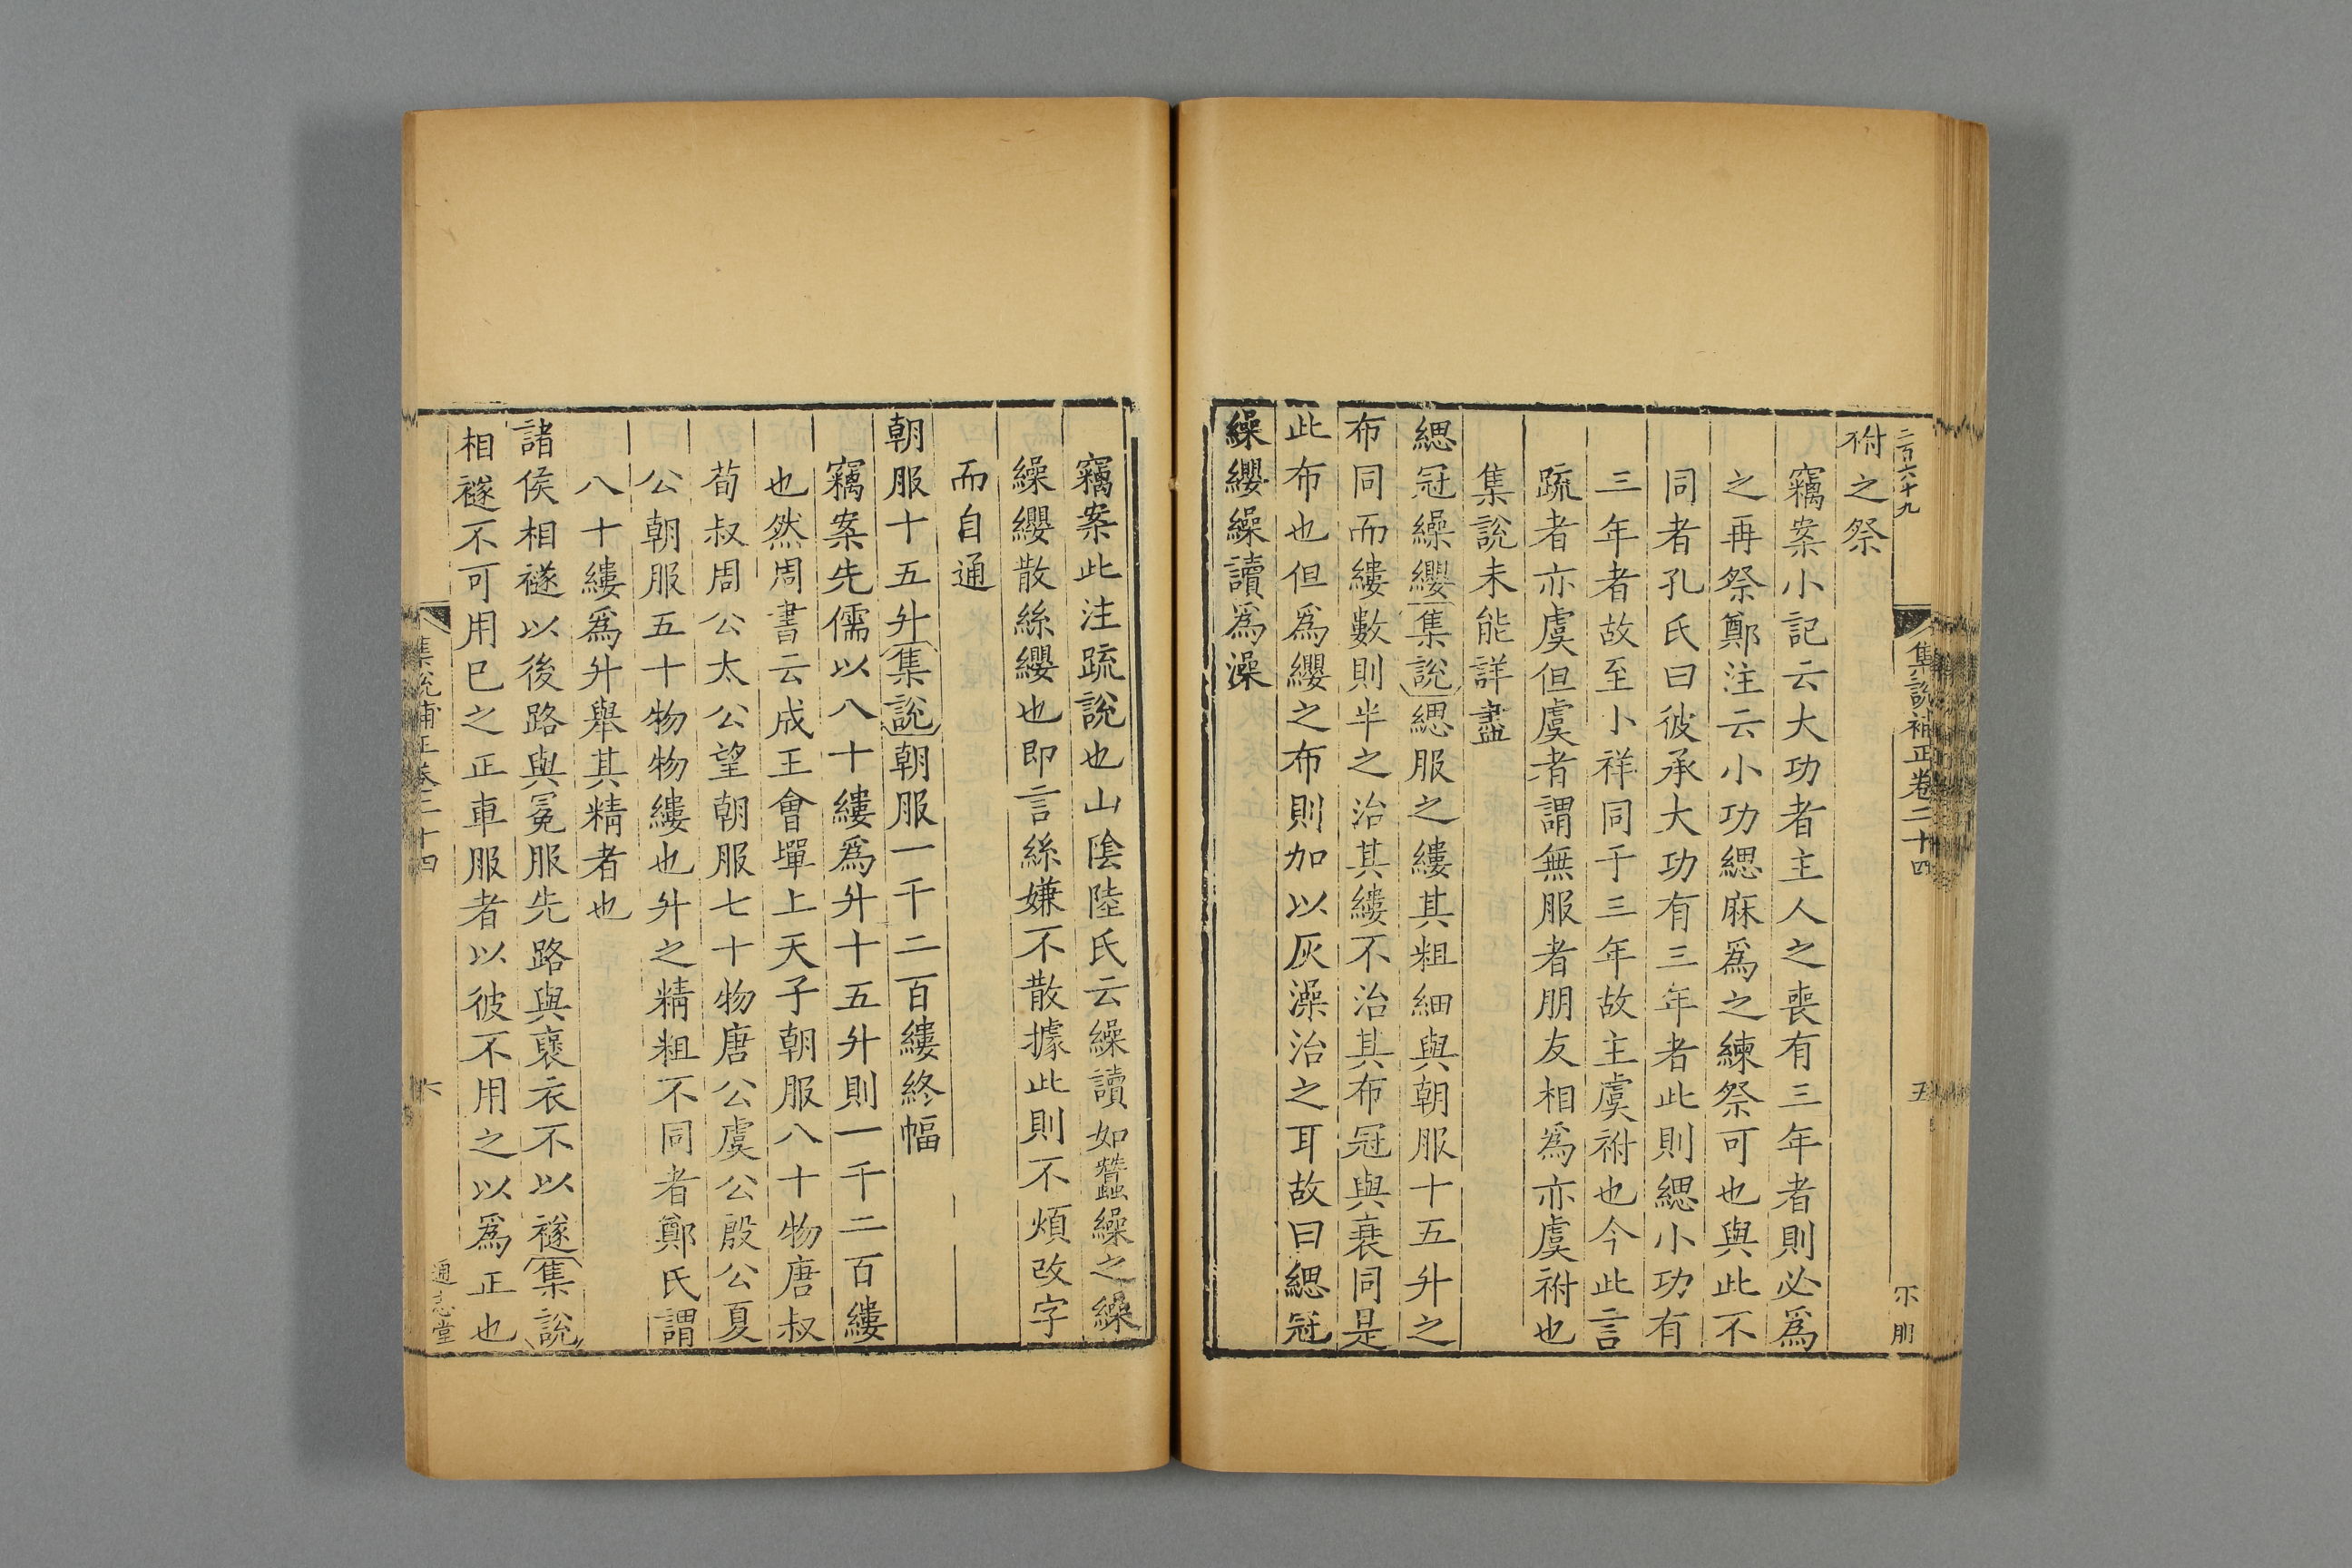 二百六十九
集説補正卷三十四
五
祔之祭
竊案小記云大功者主人之喪有三年者則必爲
之再祭鄭注云小功緦麻爲之練祭可也與此不
同者孔氏曰彼承大功有三年者此則緦小功有
三年者故至小祥同于三年故主虞祔也今此言
疏者亦虞但虞者謂無服者朋友相爲亦虞祔也
集說未能詳盡
緦冠繰纓集說緦服之縷其粗細與朝服十五升之
布同而縷數則半之治其縷不治其布冠與衰同是
此布也但爲纓之布則加以灰澡治之耳故曰緦冠
繰纓繰讀爲澡
竊案此注疏說也山陰陸氏云繰讀如蠶繰之繰
繰纓散絲纓也即言絲嫌不散據此則不煩改字
而自通
朝服十五升集說朝服一千二百縷終幅
竊案先儒以八十縷爲升十五升則一千二百縷
也然周書云成王會墠上天子朝服八十物唐叔
荀叔周公太公望朝服七十物唐公虞公殷公夏
公朝服五十物物縷也升之精粗不同者鄭氏謂
八十縷爲升舉其精者也
諸侯相襚以後路與冕服先路與襃衣不以襚集說
相襚不可用已之正車服者以彼不用之以爲正也
集說補正卷三十四
六
通志堂